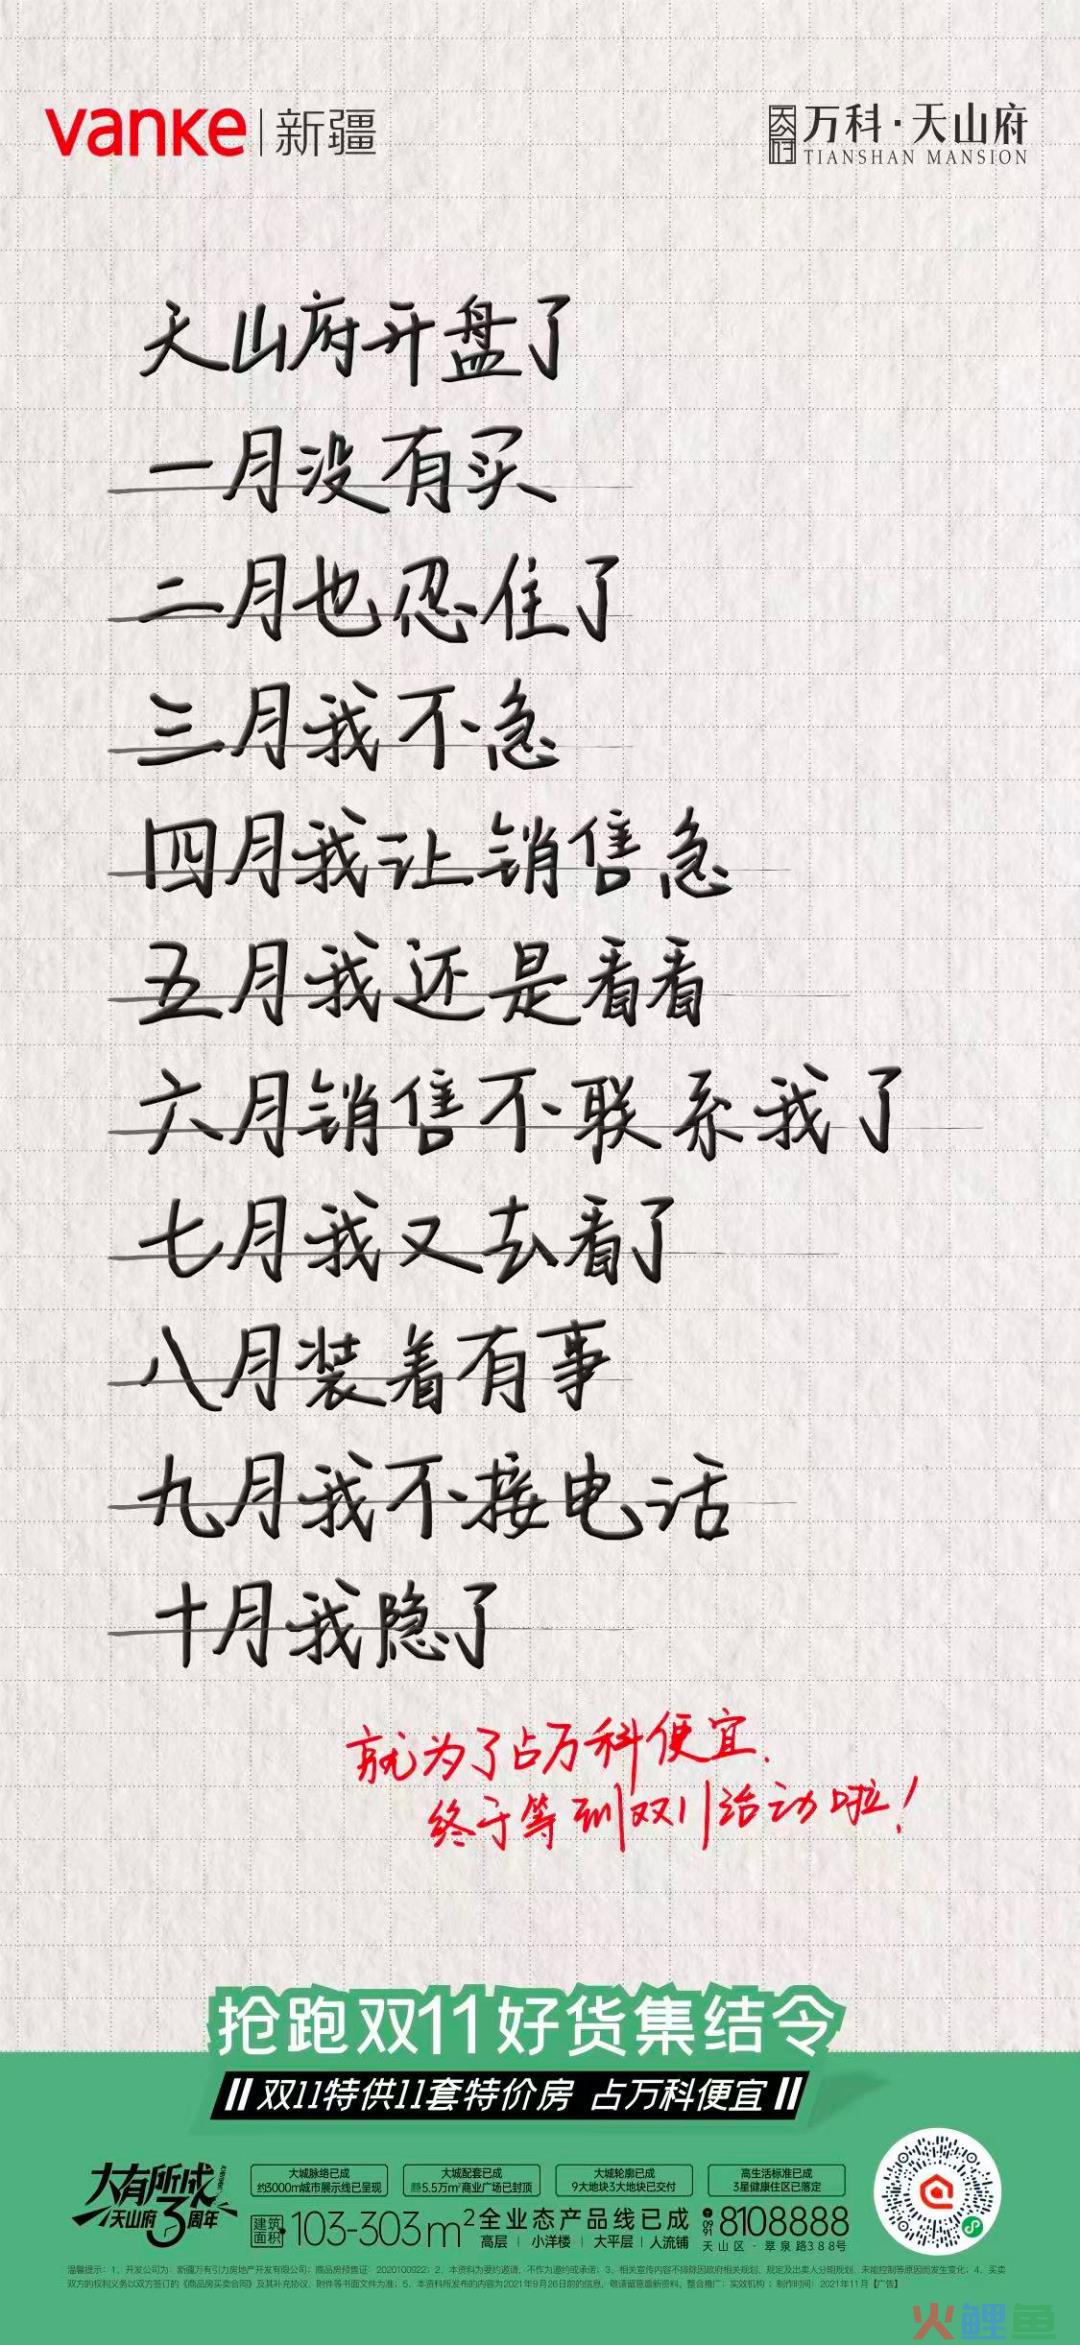 vanke | 新疆
天山府 万科·天山府
TIANSHAN MANSION
天山府开盘了
一月没有买
二月也忍住了
三月我不急
四月我让销售急
五月我还是看看
六月销售不联系我了
七月我又去看了
八月装着有事
九月我不接电话
十月我隐了
就为了占万科便宜.
终于等到双11活动啦!
抢跑双11好货集结令
双11特供11套特价房 占万科便宜
大有所成
天山府3周年
大城脉络已成
约3000m城市展示线已呈现
大城配套已成
5.5万m²商业广场已封顶
大城轮廓已成
9大地块3大地块已交付
高生活标准已成
3星健康住区已落定
建筑面积 103-303m²
全业态产品线已成
高层 | 小洋楼 | 大平层 | 人流铺
0991 8108888
天山区·翠泉路388号
温馨提示：1、开发公司为：新疆万有引力房地产开发有限公司；商品房预售证：2020100922；2、本资料为要约邀请，不作为要约或承诺；3、相关宣传内容不排除因政府相关规划、规定及出卖人分期规划、未能控制等原因而发生变化；4、买卖
双方的权利义务以双方签订的《商品房买卖合同》及其补充协议、附件等书面文件为准；5、本资料所发布的内容为2021年9月26日前的信息，敬请留意最新资料。整合推广：实效机构；制作时间：2021年11月【广告】
火鲤鱼